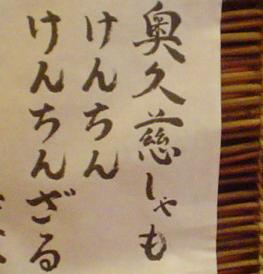 奥久慈しゃも
けんちん
けんちんざる